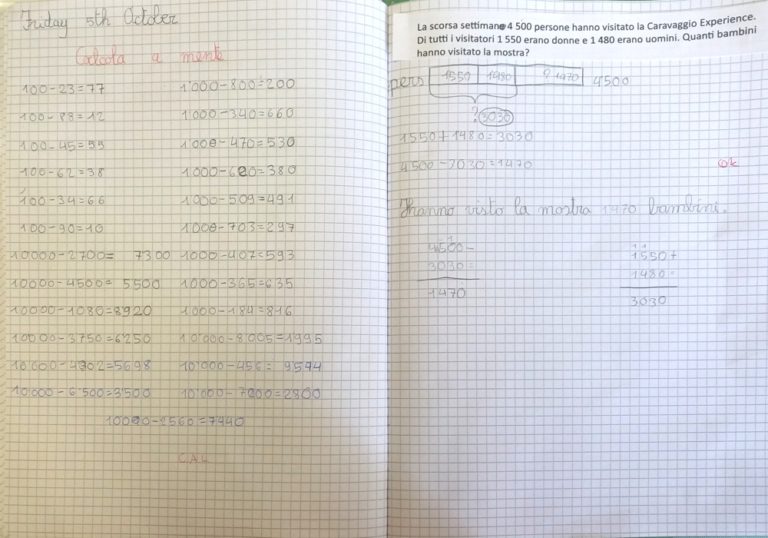 Friday 5th October
Calcola a mente
100-23=77
100-88=12
100-45=55
100-62=38
100-34=66
100-90=10
10000-2700= 7300
10000-4500= 5500
10000-1080=8920
10000-3750=6250
10'000-4302=5698
10'000-6'500=3'500
1'000-800=200
1'000-340=660
1'000-470=530
1'000-620=380
1'000-509=491
1'000-703=297
1000-407=593
1000-365=635
1000-184=816
10'000-8'005=1995
10'000-456= 9544
10'000-7200=2800
10000-2560=7440
C.A.L
La scorsa settimana 4 500 persone hanno visitato la Caravaggio Experience.
Di tutti i visitatori 1 550 erano donne e 1 480 erano uomini. Quanti bambini
hanno visitato la mostra?
pers 1550 1480 ? 1470 4500
? 3030
1550+1480=3030
4500-3030=1470 ok
Hanno visto la mostra 1470 bambini.
4500-
3030=
1470
1 1
1550+
1480=
3030